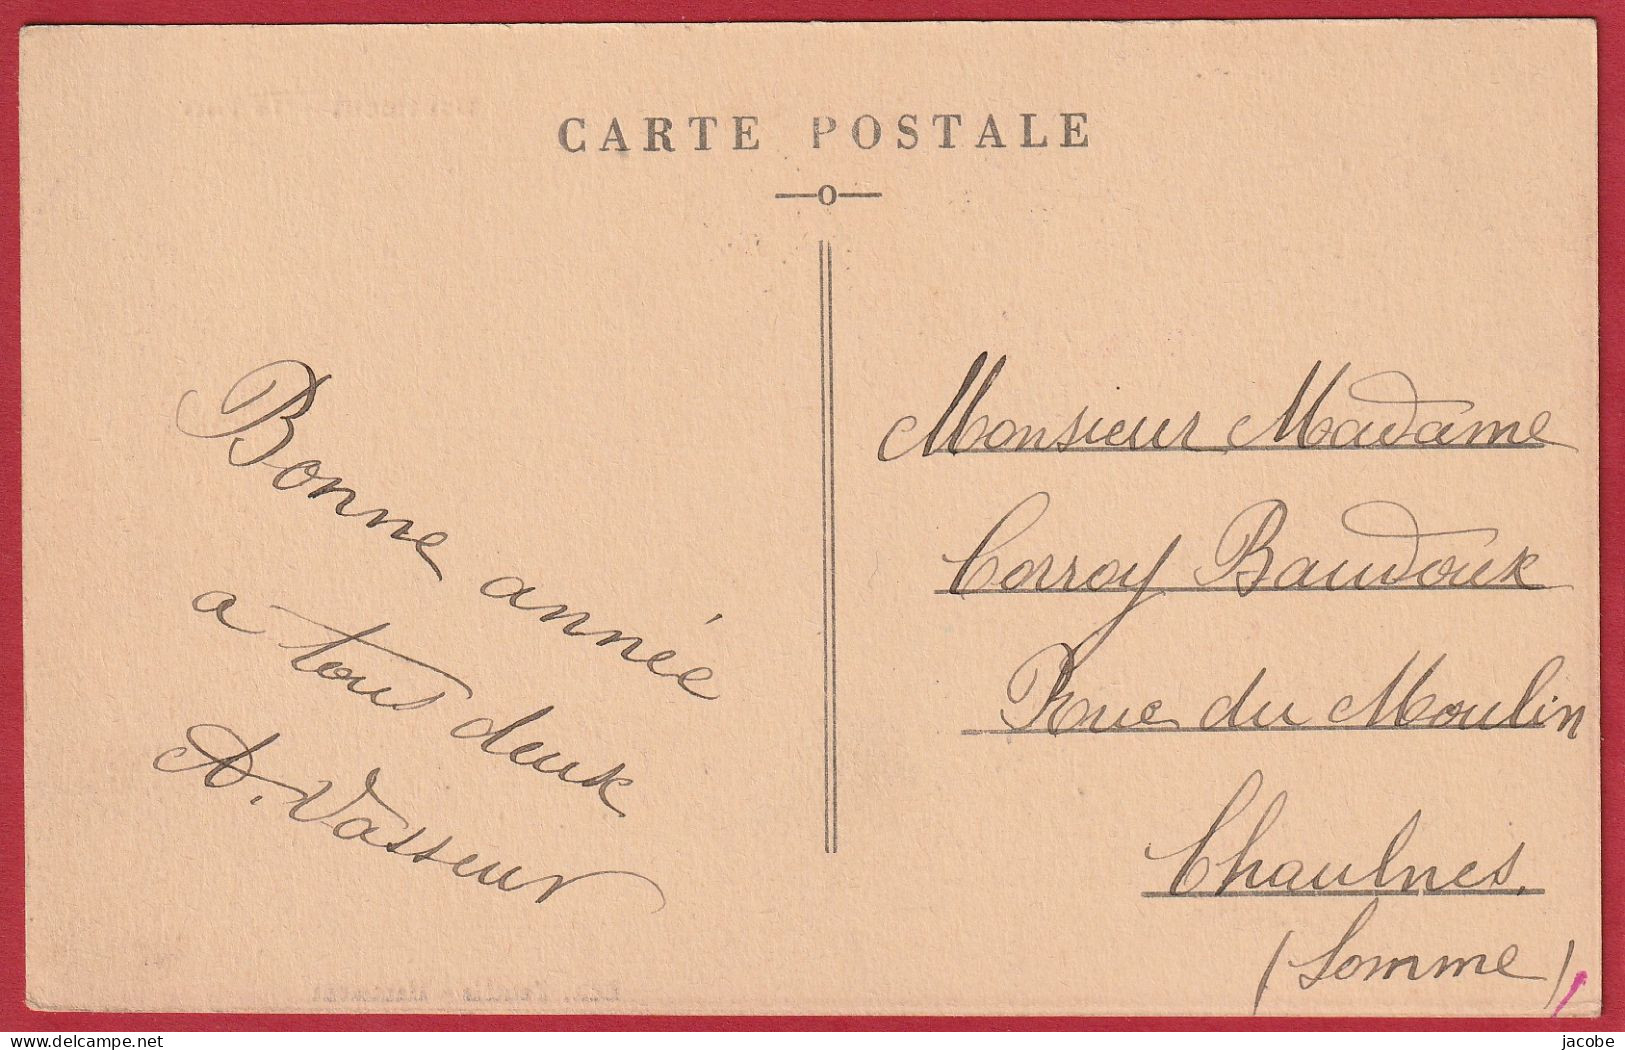 CARTE POSTALE
Bonne année
a tous deux
A. Vasseur
Monsieur Madame
Corroy Baudoux
Rue du Moulin
Chaulnes.
(Somme)
jacobe